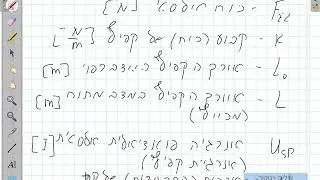 F_el - כוח אלסטי [N]
K - קבוע (כוח) של קפיץ [N/m]
L₀ - אורך הקפיץ במצב רפוי [m]
L - אורך הקפיץ במצב מתוח [m]
(מכווץ)
U_sp אנרגיה פוטנציאלית אלסטית [J]
(אנרגית קפיץ)